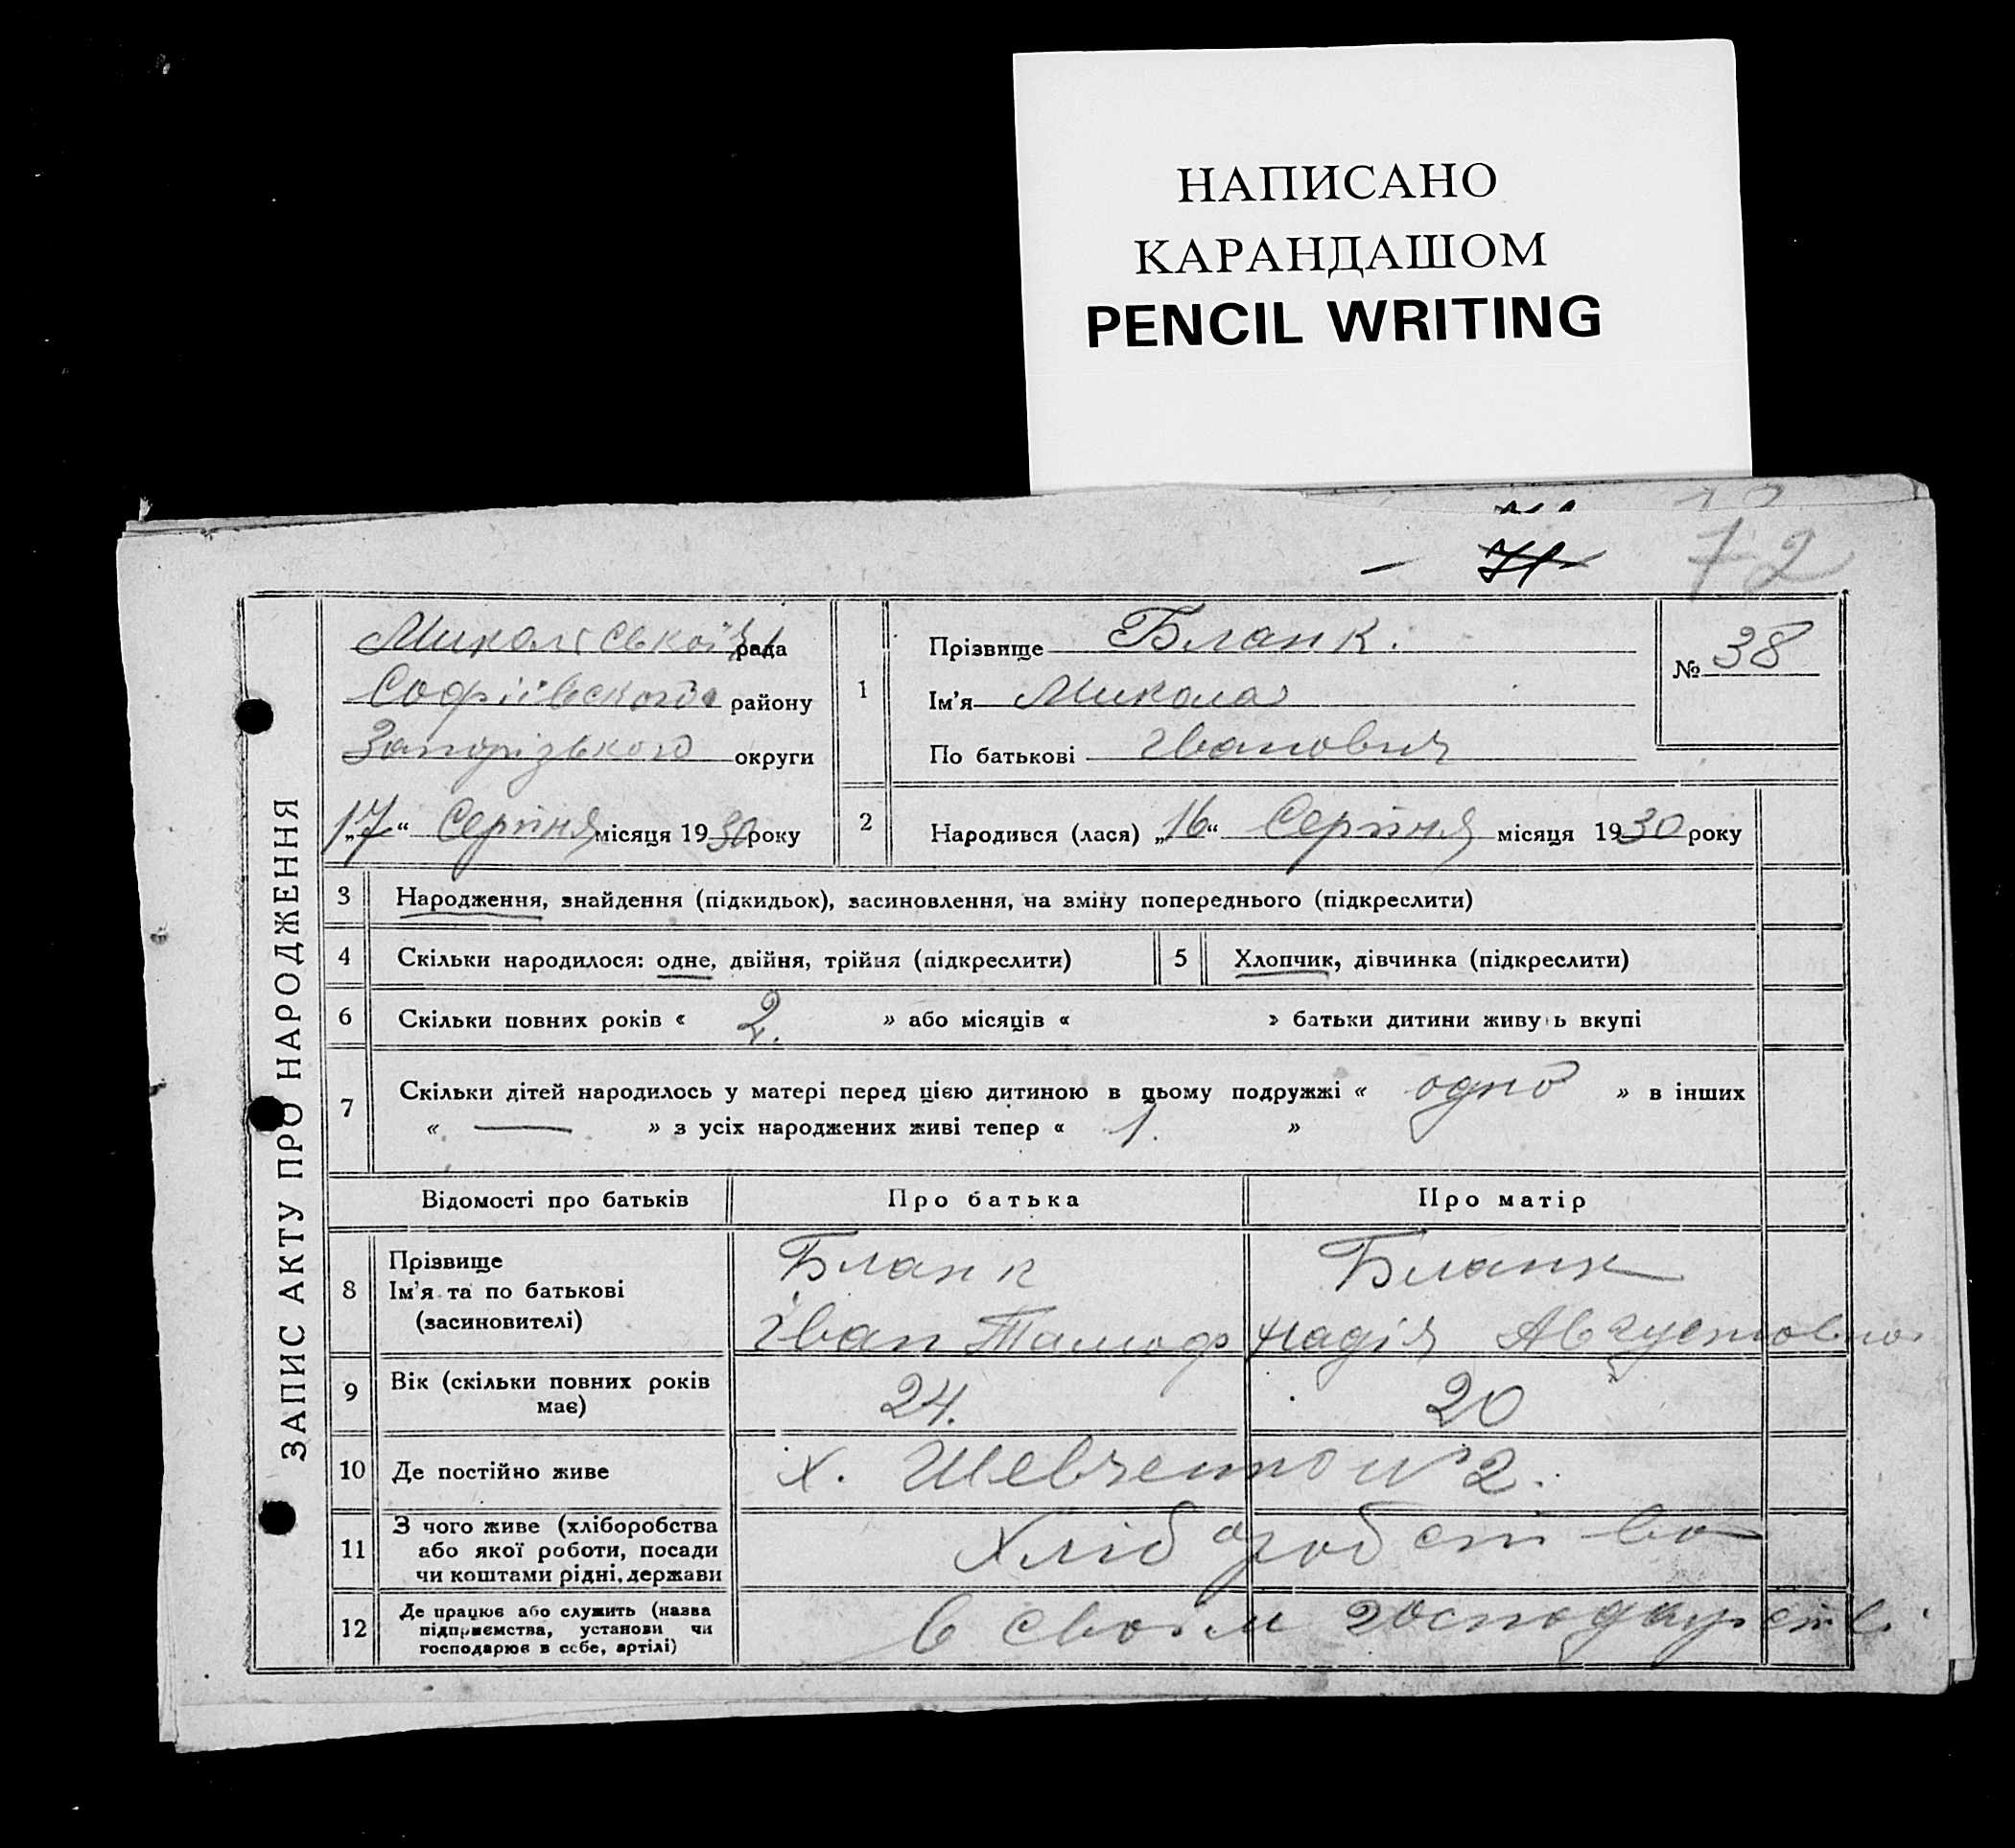 НАПИСАНО
КАРАНДАШОМ
PENCIL WRITING
71 72
ЗАПИС АКТУ ПРО НАРОДЖЕННЯ
рада
Софіївского району
Запорізького округи
„17“ Серпня місяця 1930 року
1
Прізвище Бланк.
Ім'я Микола
По батькові Іванович
№ 38
2 Народився (лася) „16“ Серпня місяця 1930 року
3 Народження, знайдення (підкидьок), засиновлення, на зміну попереднього (підкреслити)
4 Скільки народилося: одне, двійня, трійня (підкреслити) 5 Хлопчик, дівчинка (підкреслити)
6 Скільки повних років « 2. » або місяців « » батьки дитини живуть вкупі
7 Скільки дітей народилось у матері перед цією дитиною в цьому подружжі « одно » в інших
« — » з усіх народжених живі тепер « 1. »
Відомості про батьків Про батька Про матір
8 Прізвище Бланк Бланк
Ім'я та по батькові
(засиновителі) Іван Надія Августовна
9 Вік (скільки повних років має) 24. 20
10 Де постійно живе х. Шевченко № 2.
11 З чого живе (хліборобства
або якої роботи, посади
чи коштами рідні, держави Хліборобство
12 Де працює або служить (назва
підприємства, установи чи
господарює в себе, артілі) в своїм господарстві